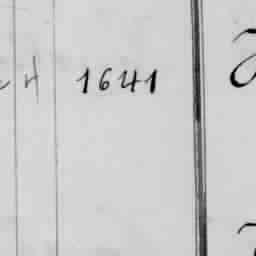 H 1641